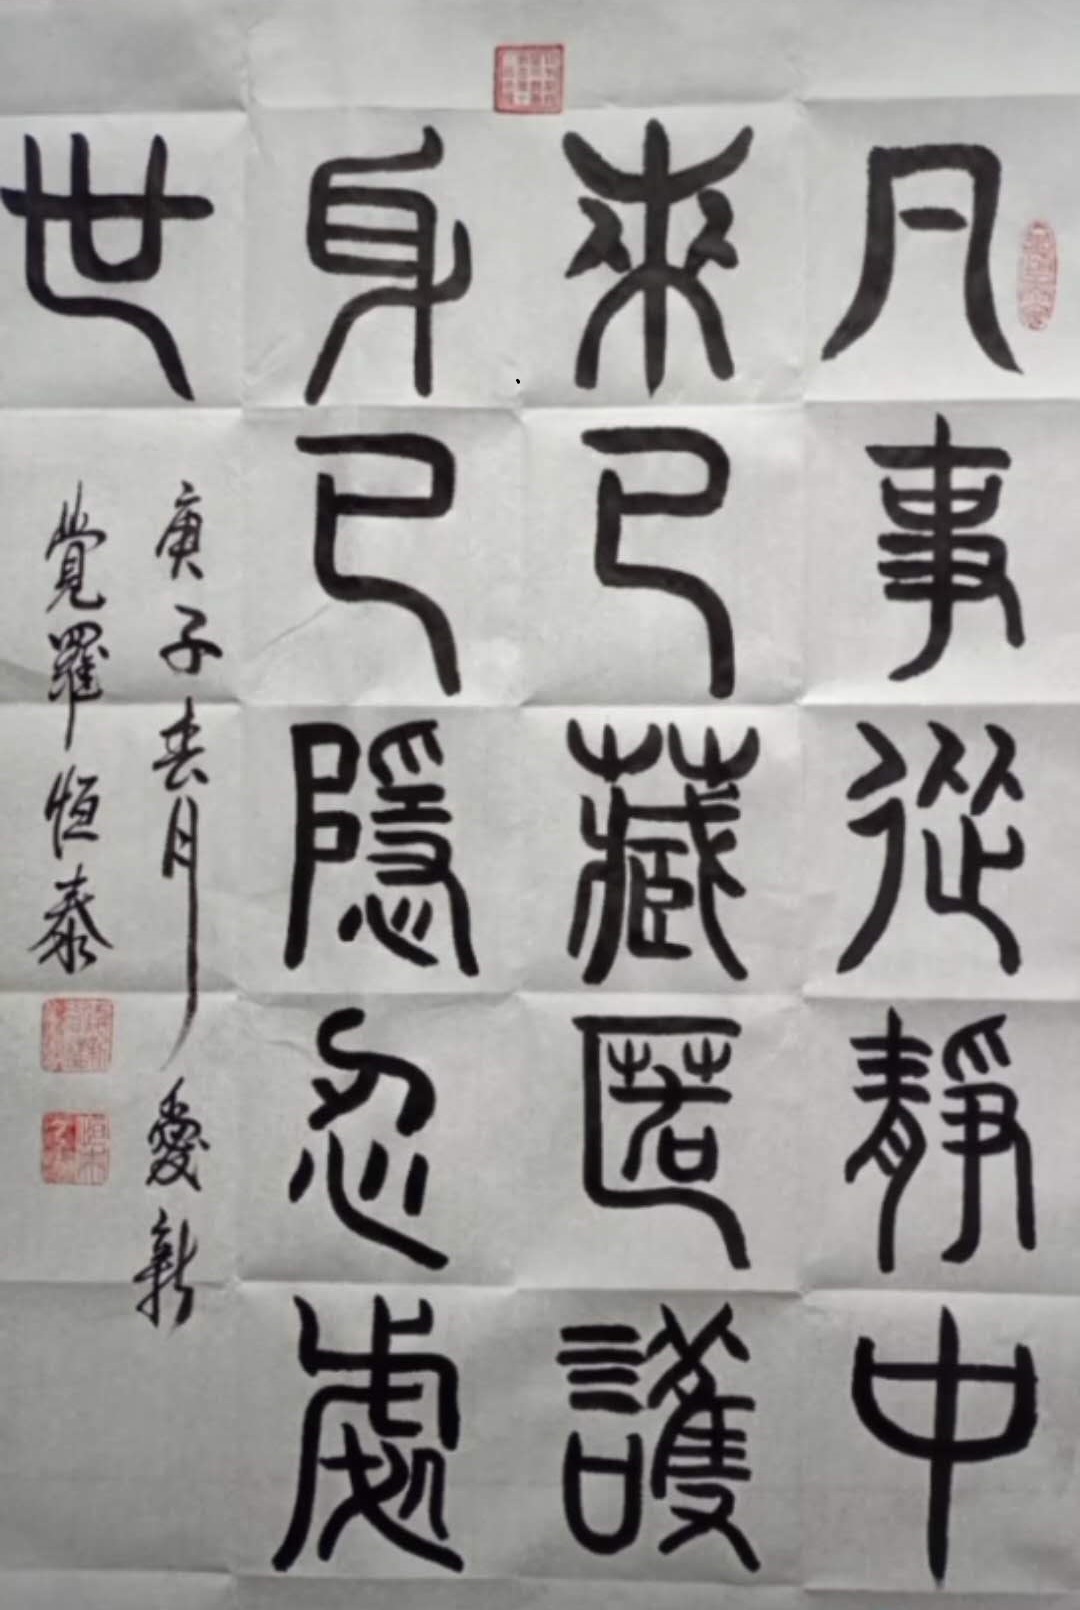 凡事從靜中
來已藏匿護
身已隱忍處
世
庚子春月愛新
覺羅恒泰